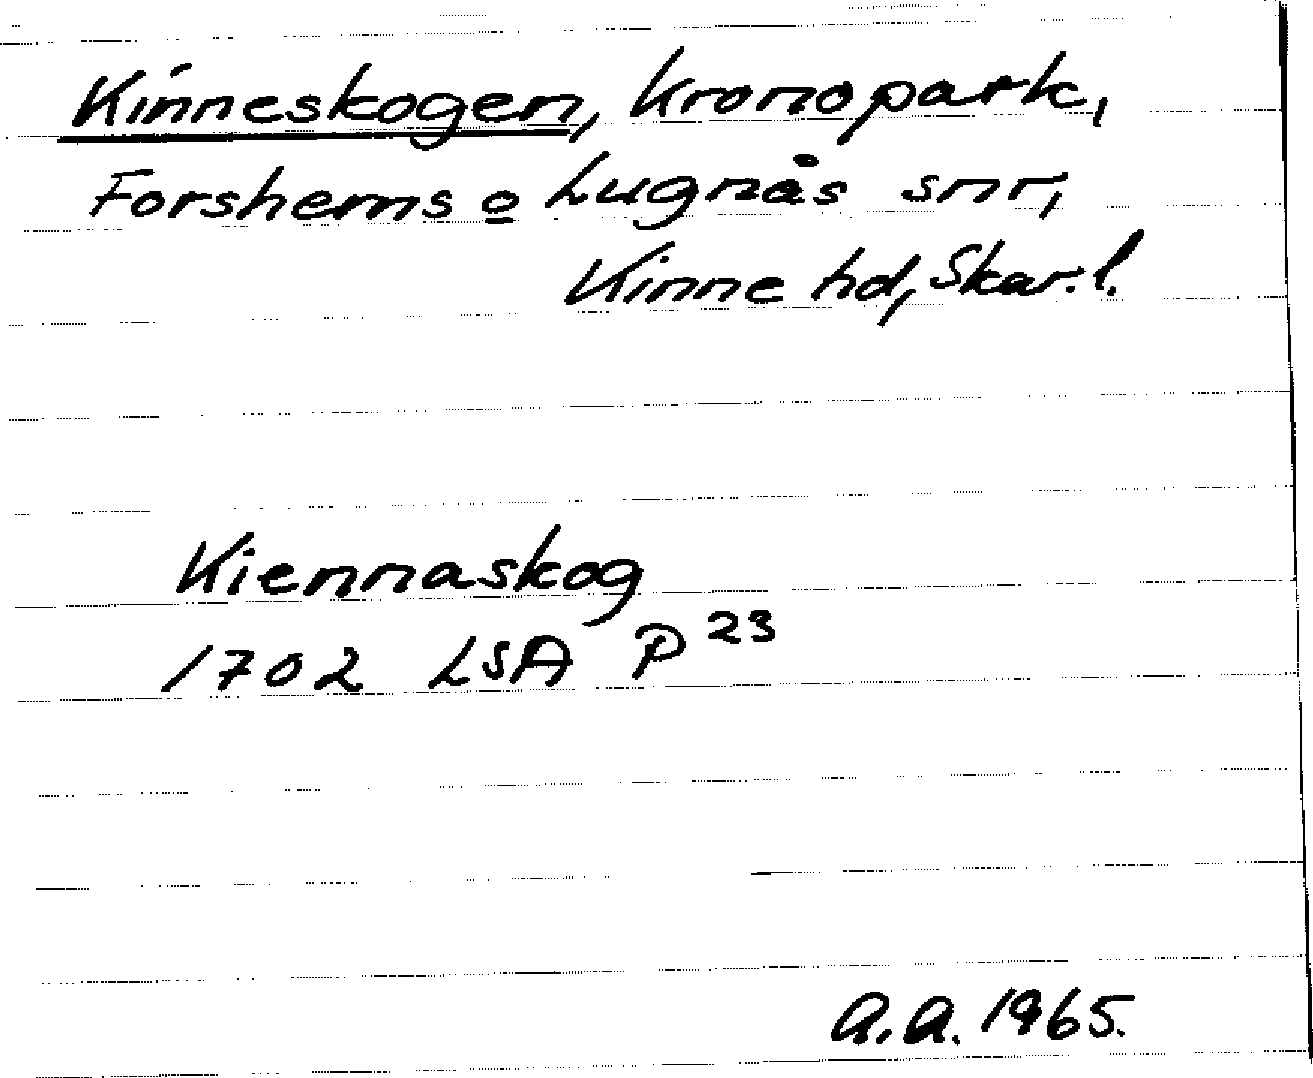 Kinneskogen, kronopark,
Forshems o Lugnås snr,
Kinne hd, Skar. l.
Kiennaskog
1702 LSA P 23
A.A. 1965.